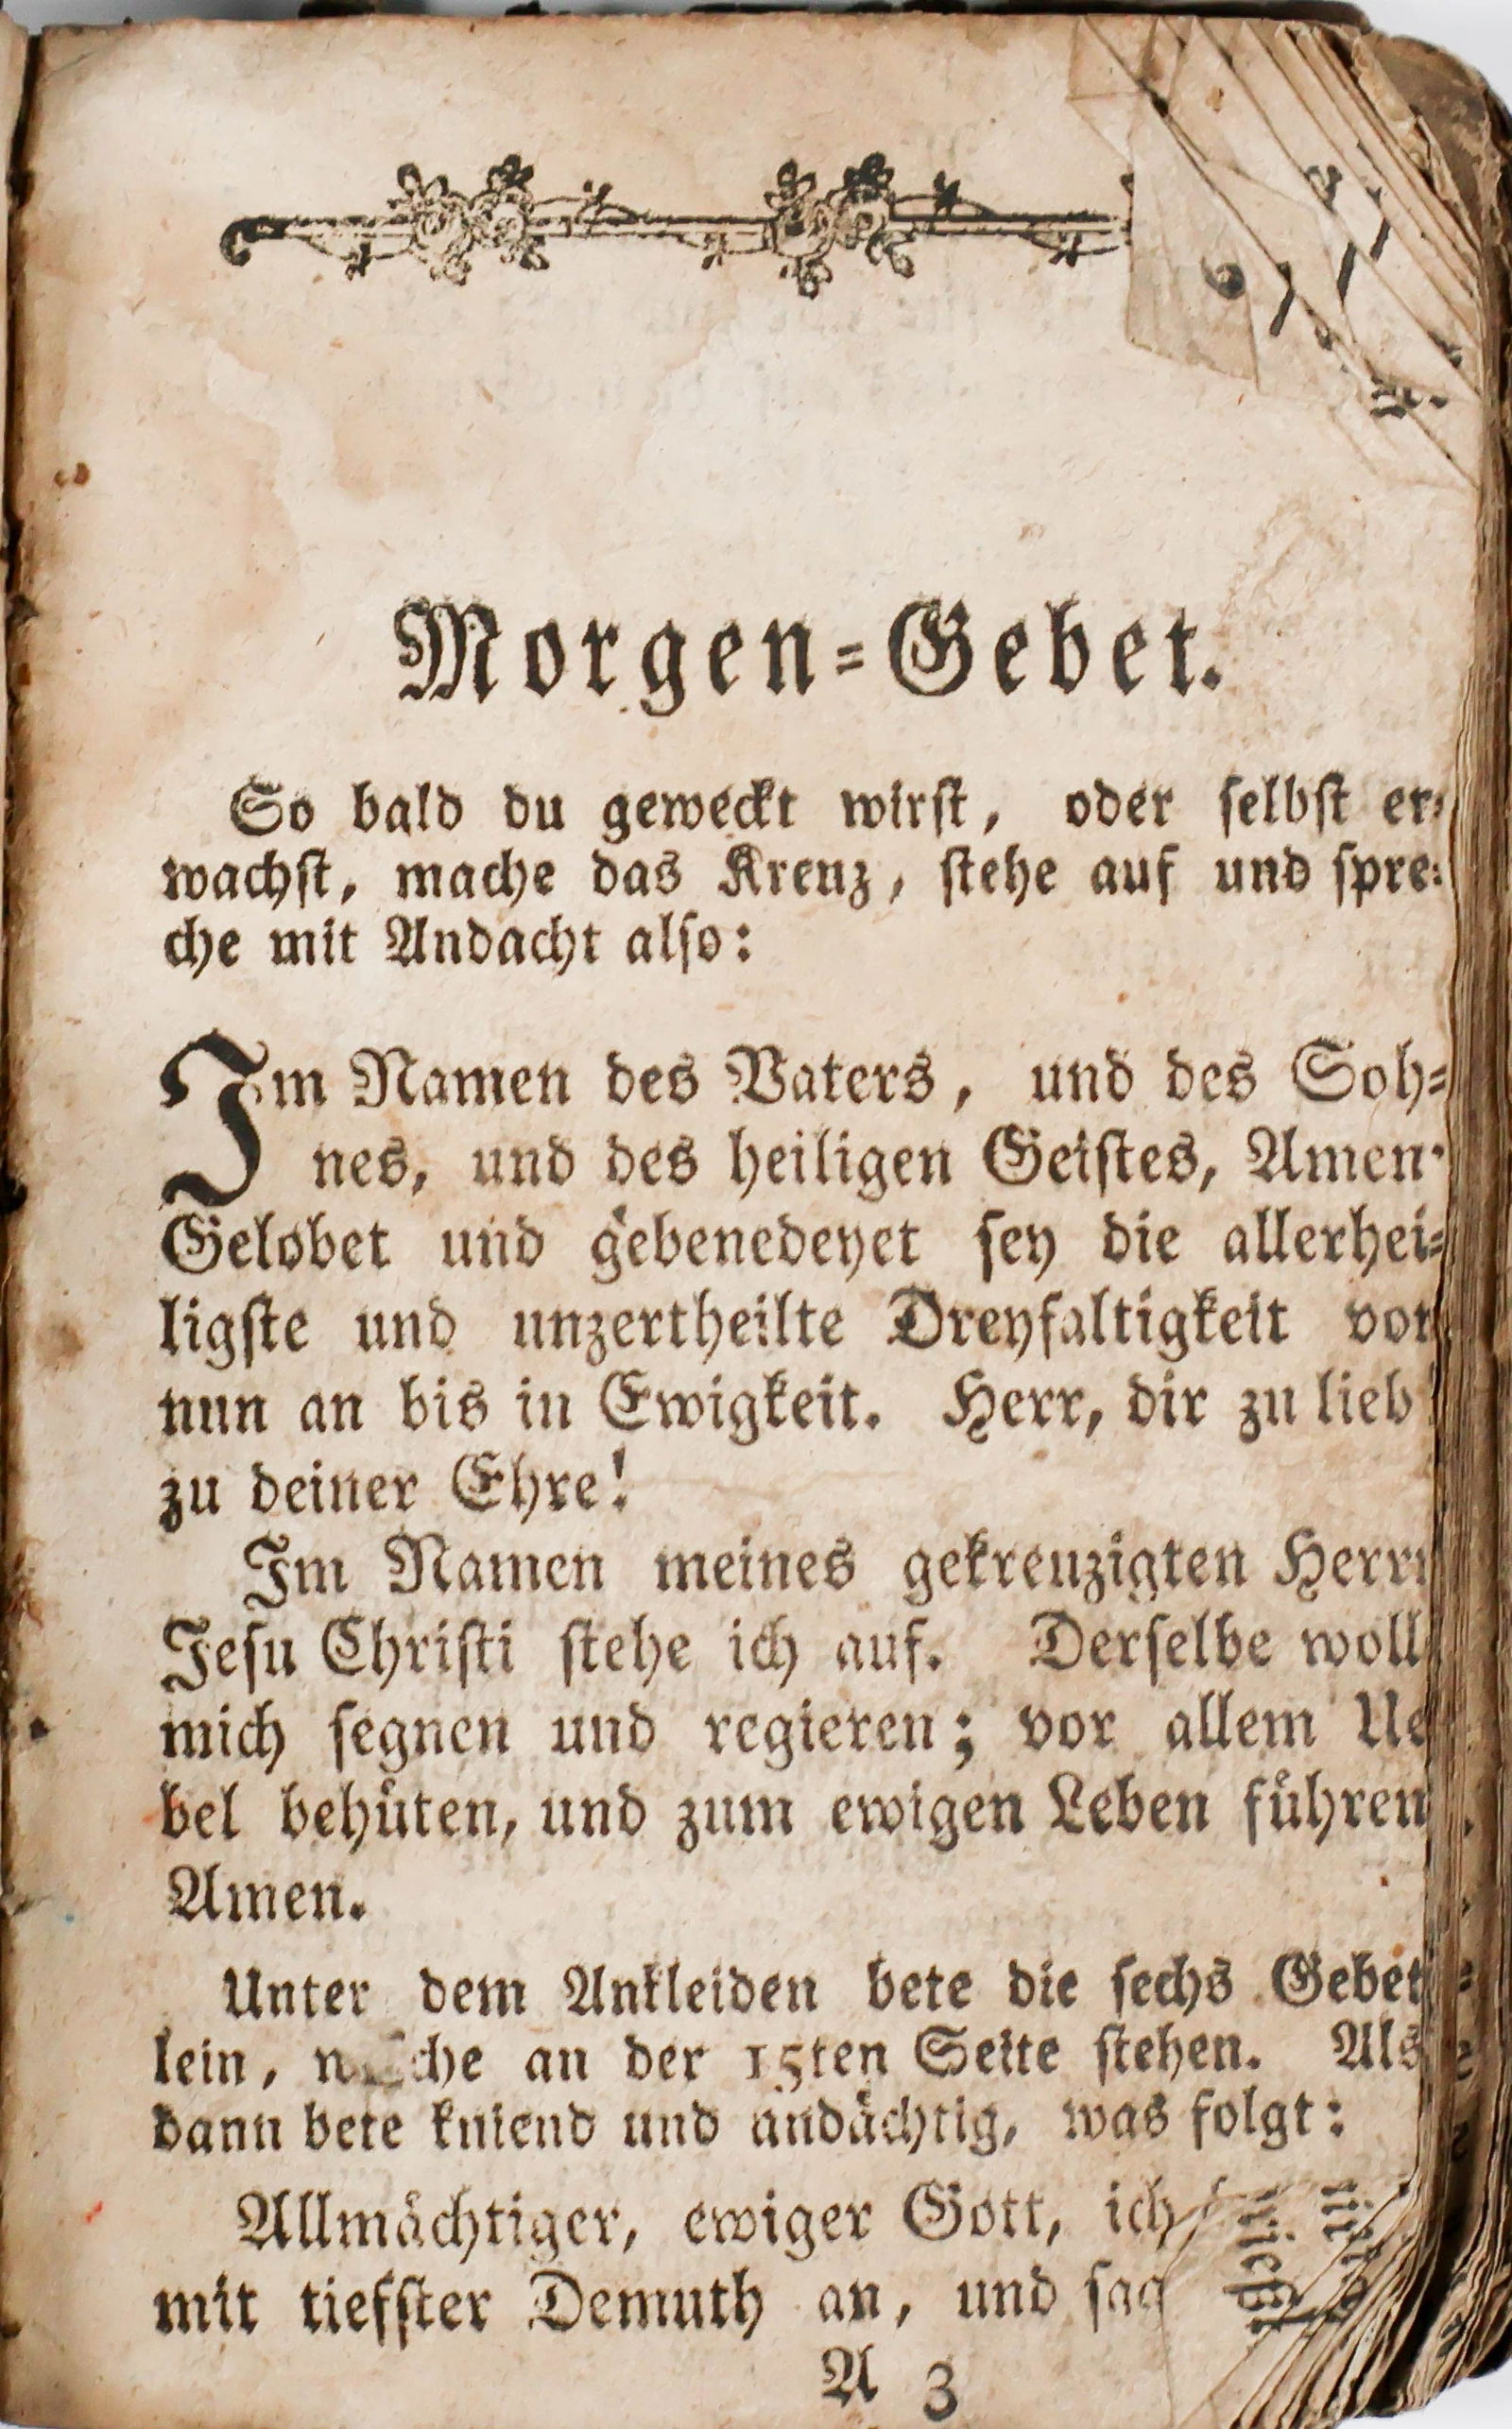 Morgen=Gebet.
So bald du geweckt wirst, oder selbst er=
wachst, mache das Kreuz, stehe auf und spre=
che mit Andacht also:
Im Namen des Vaters, und des Soh=
nes, und des heiligen Geistes, Amen.
Gelobet und gebenedeyet sey die allerhei=
ligste und unzertheilte Dreyfaltigkeit von
nun an bis in Ewigkeit. Herr, dir zu lieb
zu deiner Ehre!
Im Namen meines gekreuzigten Herrn
Jesu Christi stehe ich auf. Derselbe woll
mich segnen und regieren; vor allem Ue
bel behüten, und zum ewigen Leben führen
Amen.
Unter dem Ankleiden bete die sechs Gebet
lein, welche an der 15ten Seite stehen. Als
dann bete kniend und andächtig, was folgt:
Allmächtiger, ewiger Gott, ich
mit tiefster Demuth an, und sag
A 3